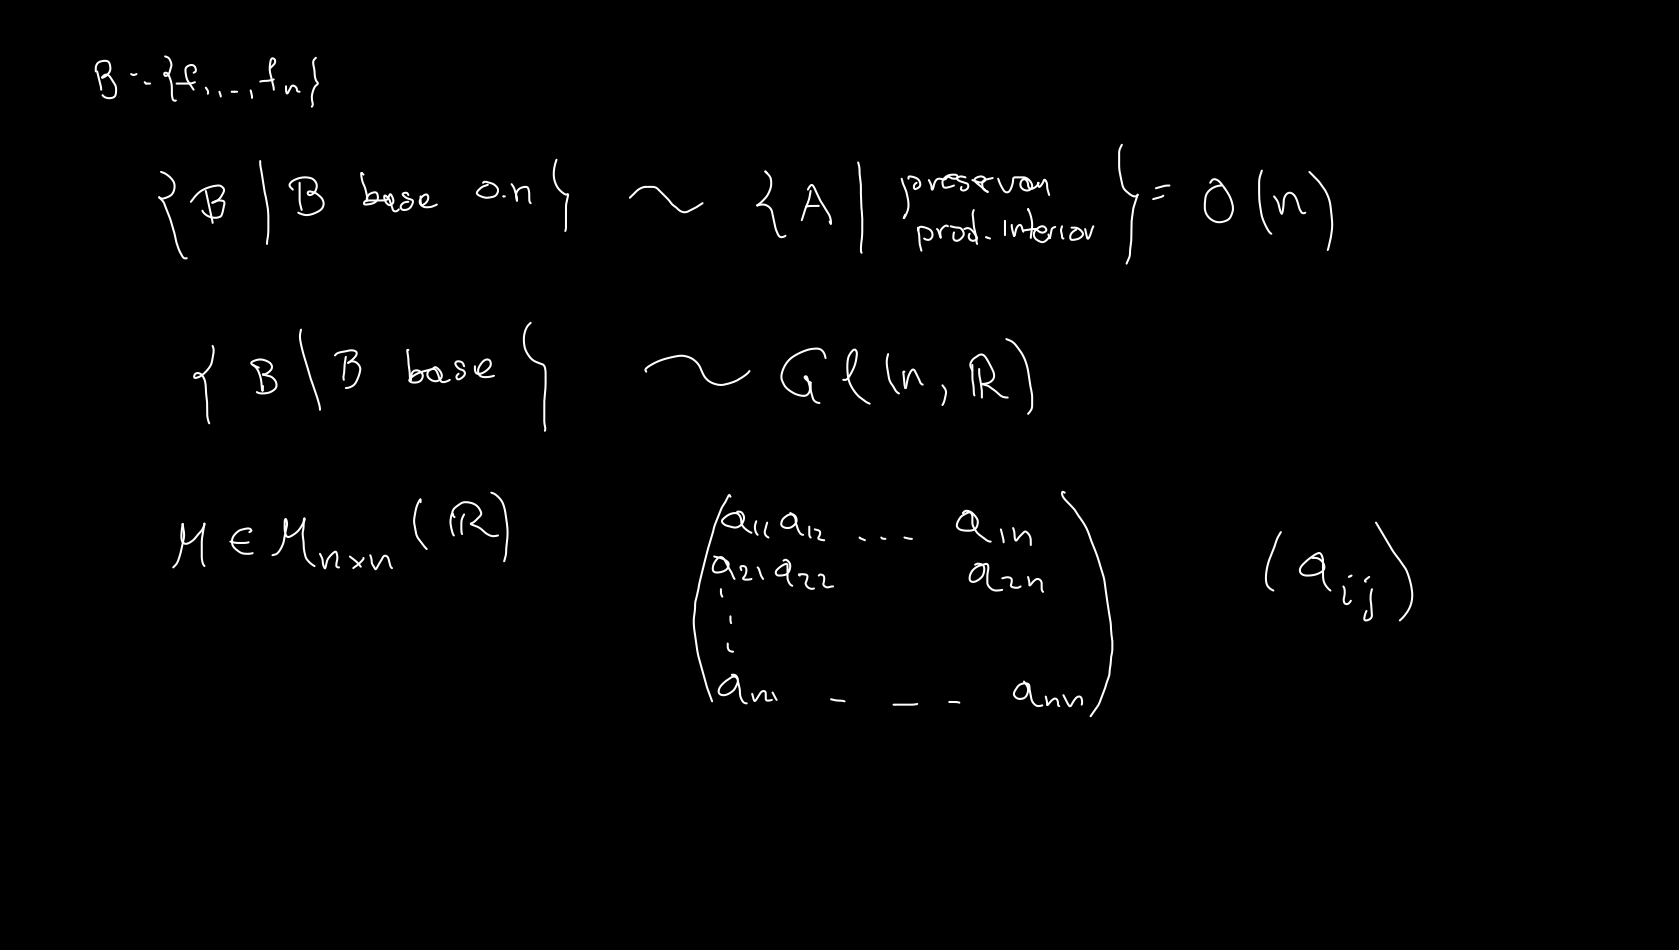 B = {f₁, ..., fₙ}
{B | B base o.n} ~ {A | preservan prod. interior} = O(n)
{B | B base} ~ Gl(n, ℝ)
M ∈ Mₙₓₙ(ℝ)
a₁₁ a₁₂ ... a₁ₙ
a₂₁ a₂₂ a₂ₙ
(aᵢⱼ)
⋮
aₙ₁ - - - aₙₙ